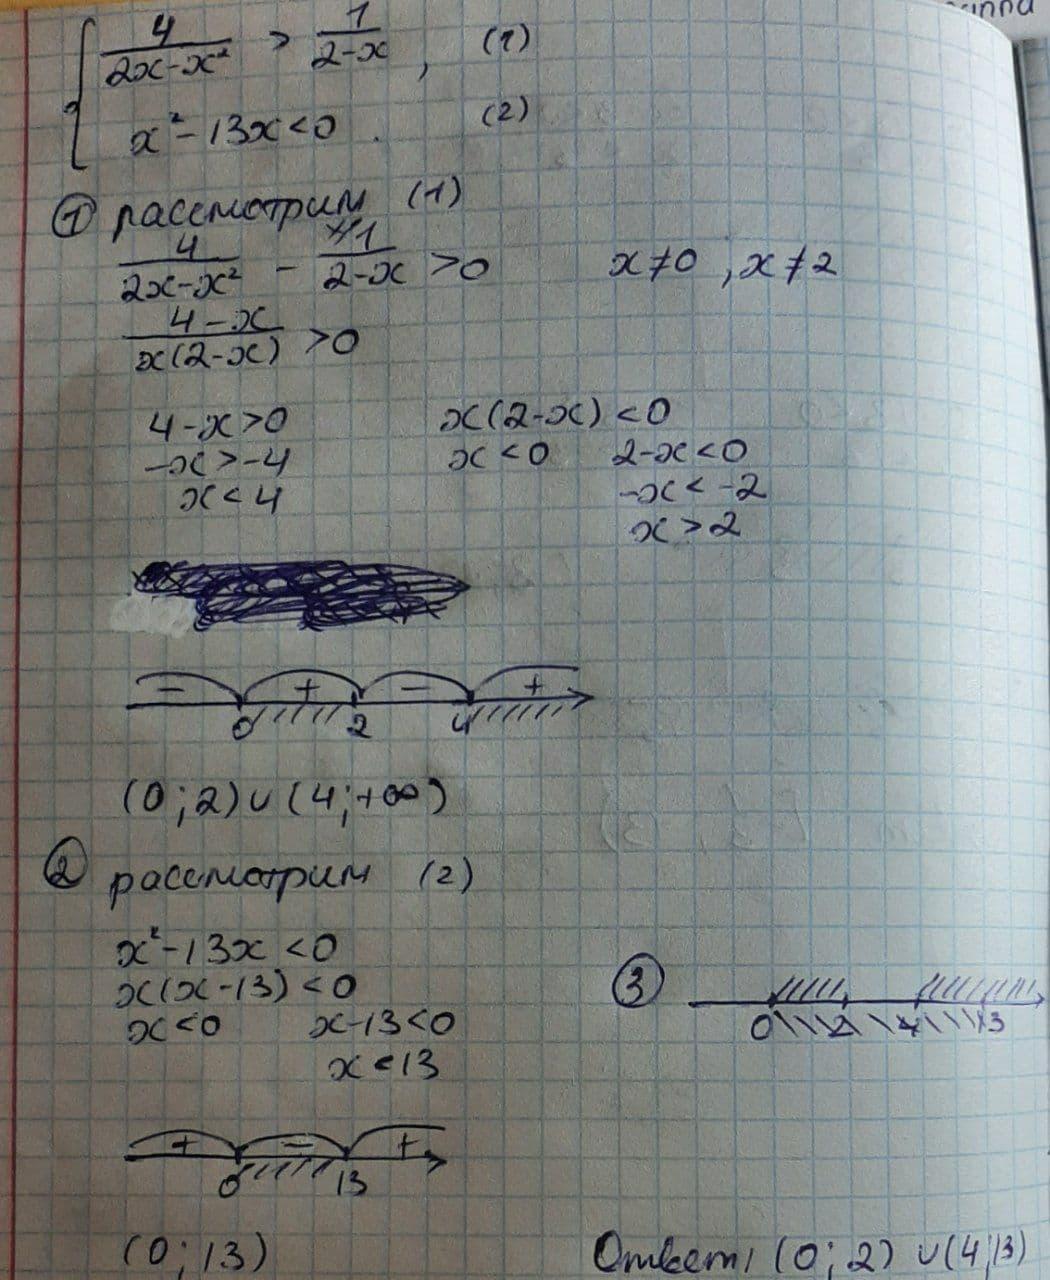 4/(2x-x²) > 1/(2-x), (1)
x²-13x<0. (2)
① рассмотрим (1)
4/(2x-x²) - 1/(2-x) >0 x≠0, x≠2
(4-x)/(x(2-x)) >0
4-x>0 x(2-x)<0
-x>-4 x<0 2-x<0
x<4 -x<-2
x>2
- + - +
0 2 4
(0;2)∪(4;+∞)
② рассмотрим (2)
x²-13x<0
x(x-13)<0
x<0 x-13<0
x<13
③
0 2 4 13
+ - +
0 13
(0;13)
Ответ: (0;2)∪(4;13)